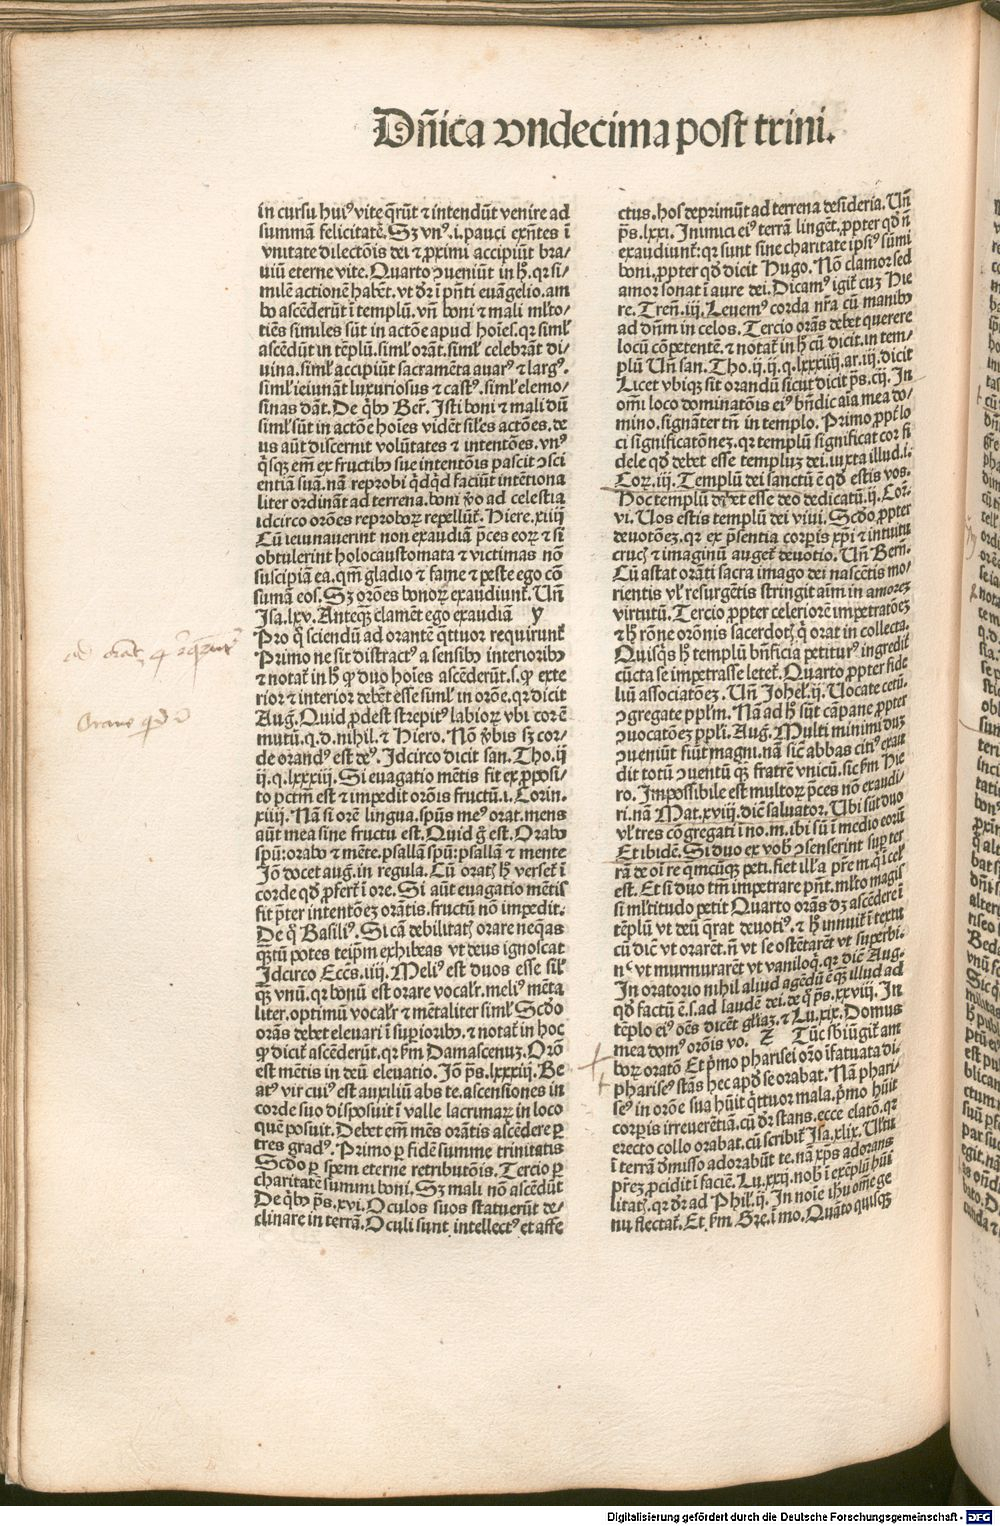 Dn̄ica vndecima post trini.
in cursu huiꝰ vite q̄rūt ⁊ intendūt venire ad
summā felicitatē. Sꝫ vnꝰ .i. pauci exn̄tes ī
vnitate dilectōis dei ⁊ ꝓximi accipiūt bra-
uiū eterne vite. Quarto ꝯueniūt in hͦ. qꝛ si-
milē actionē habēt. vt dr̄ ī pn̄ti euāgelio. am
bo ascēderūt ī templū. vn̄ boni ⁊ mali ml̓to-
tiēs similes sūt in actōe apud hoīes. qꝛ siml̓
ascēdūt in tēplū. siml̓ orāt. siml̓ celebrāt di-
uina. siml̓ accipiūt sacramēta auarꝰ ⁊ largꝰ.
siml̓ ieiunāt luxuriosus ⁊ castꝰ. siml̓ elemo-
sinas dāt. De q̓bꝰ Ber̄. Isti boni ⁊ mali dū
siml̓ sūt in actōe hoīes vidēt sil̓es actōes. de
us aūt discernit volūtates ⁊ intentōes. vnꝰ
q̓sqꝫ em̄ ex fructibꝰ sue intentōis pascit ꝯsci
entiā suā. nā reprobi q̓dq̓d faciūt intētiona
liter ordināt ad terrena. boni ꝟo ad celestia
idcirco orōes reproboꝝ repellūt᷑. Hiere. xiiij
Cū ieiunauerint non exaudiā p̄ces eoꝝ ⁊ si
obtulerint holocaustomata ⁊ victimas nō
suscipiā ea. qm̄ gladio ⁊ fame ⁊ peste ego cō
sumā eos. Sꝫ orōes bonoꝝ exaudiunt᷑. Un̄
Isa. lxv. Anteqꝫ clamēt ego exaudiā y
Pro q̊ sciendū ad orantē q̓ttuor requirunt᷑
Primo ne sit distractꝰ a sensibꝰ interioribꝰ
⁊ notat᷑ in hͦ ꝙ duo hoīes ascēderūt. s. ꝙ exte
rior ⁊ interior debēt esse siml̓ in orōe. qꝛ dicit
Aug̓. Quid ꝓdest strepitꝰ labioꝝ vbi cor ē
mutū. q. d. nihil. ⁊ Hiero. Nō ꝟbis sꝫ cor-
de orandꝰ est deꝰ. Idcirco dicit san. Tho. ij
ij. q. lxxxiij. Si euagatio mētis fit ex ꝓposi-
to pctm̄ est ⁊ impedit orōis fructū. i. Corin.
xiiij. Nā si orē lingua. spūs meꝰ orat. mens
aūt mea sine fructu est. Quid g̊ est. Orabo
spū: orabo ⁊ mēte. psallā spū: psallā ⁊ mente
Iō docet aug̓. in regula. Cū oratꝭ hͦ verset᷑ ī
corde qd̓ ꝓfert᷑ ī ore. Si aūt euagatio mētis
fit p̄ter intentōeꝫ orātis. fructū nō impedit.
De q̊ Basiliꝰ. Si cā debilitatꝭ orare neq̓as
qꝫtū potes teip̄m exhibeas vt deus ignoscat
Idcirco Eccēs. iiij. Meliꝰ est duos esse sil̓
qꝫ vnū. qꝛ bonū est orare vocalr̓. meliꝰ mēta
liter. optimū vocalr̓ ⁊ mētaliter siml̓. Scd̓o
orās debet eleuari ī supioribꝰ. ⁊ notat᷑ in hoc
ꝙ dicit᷑ ascēderūt. qꝛ ẜm Damascenuꝫ. Orō
est mētis in deū eleuatio. Iō ps̄. lxxxiij. Be
atꝰ vir cuiꝰ est auxiliū abs te. ascensiones in
corde suo disposuit ī valle lacrimaꝝ in loco
quē posuit. Debet em̄ mēs orātis ascēdere ꝑ
tres gradꝰ. Primo ꝑ fidē summe trinitatis
Scd̓o ꝑ spem eterne retributōis. Tercio ꝑ
charitatē summi boni. Sꝫ mali nō ascēdūt
De q̓bꝰ ps̄. xvi. Oculos suos statuerūt de-
clinare in terrā. Oculi sunt intellectꝰ et affe
ctus. hos deprimūt ad terrena desideria. Un̄
ps̄. lxxi. Inimici eiꝰ terrā lingēt. ꝓpter qd̓ nō
exaudiunt᷑: qꝛ sunt sine charitate ipsiꝰ sūmi
boni. ꝓpter qd̓ dicit Hugo. Nō clamor sed
amor sonat ī aure dei. Dicamꝰ igit᷑ cuꝫ Hie
re. Tren̄. iij. Leuemꝰ corda nr̄a cū manibꝰ
ad dn̄m in celos. Tercio orās debet querere
locū cōpetentē. ⁊ notat᷑ in hͦ cū dicit. in tem-
plū Un̄ san. Tho. ij. ij. q. lxxxiiij. ar. iij. dicit
Licet vbiqꝫ sit orandū sicut dicit ps̄. cij. In
om̄i loco dominatōis eiꝰ bn̄dic aīa mea do-
mino. signāter tn̄ in templo. Primo ꝓpt᷑ lo
ci significatōneꝫ. qꝛ templū significat cor fi
dele qd̓ debet esse templuꝫ dei. iuxta illud. i.
Coꝝ. iij. Templū dei sanctū ē qd̓ estis vos.
Hoc templū debet esse deo dedicatū. ij. Cor̄.
vi. Uos estis templū dei viui. Scd̓o ꝓpter
deuotōeꝫ. qꝛ ex p̄sentia corpis xp̄i ⁊ intuitu
crucꝭ ⁊ imaginū auget᷑ deuotio. Un̄ Bern̄.
Cū astat orāti sacra imago dei nascētis mo-
rientis vl̓ resurgētis stringit aīm in amoreꝫ
virtutū. Tercio ꝓpter celeriorē impetratōeꝫ
⁊ hͦ rōne orōnis sacerdotꝭ q̓ orat in collecta.
Quisq̓s hͦ templū bn̄ficia petiturꝰ ingredit᷑
cūcta se impetrasse letet᷑. Quarto ꝓpter fide
liū associatōeꝫ. Un̄ Johel̓. ij. Uocate cetū.
ꝯgregate pplm̄. Nā ad hͦ sūt cāpane ꝓpter
ꝯuocatōeꝫ ppl̓i. Aug̓. Multi minimi duꝫ
ꝯueniūt fiūt magni. nā sic̄ abbas citiꝰ exau
dit totū ꝯuentū qꝫ fratrē vnicū. sic ẜm Hie
ro. Impossibile est multoꝝ p̄ces nō exaudi-
ri. nā Mat. xviij. dic̄ saluator. Ubi sūt duo
vl̓ tres cōgregati ī no. m. ibi sū ī medio eorū
Et ibidē. Si duo ex vob̓ ꝯsenserint suꝑ ter
rā de oī re q̄mcūqꝫ peti. fiet ill̓a pr̄e m. q̓ ī cel̓
est. Et si duo tm̄ impetrare pn̄t. ml̓to magis
si ml̓titudo petit Quarto orās dꝫ ascēdere ī
tēplū vt deū q̄rat deuotiꝰ. ⁊ hͦ innuit᷑ ī textu
cū dic̄ vt orarēt. n̄ vt se ostētarēt vt supbi-
nͨ vt murmurarēt vt vaniloq̄. qꝛ dic̄ Aug̓.
In oratorio nihil aliud agēdū ē qꝫ illud ad
qd̓ factū ē. s. ad laudē dei. de q̊ ps̄. xxviij. In
tēplo eiꝰ oēs dicēt gl̓iaꝫ. ⁊ Lu. xix. Domus
mea domꝰ orōis vo. Z Tūc sbiūgit᷑ am
boꝝ oratō Et p̓mo pharisei orō īfatuata di-
phariseꝰ stās hec apd̓ se orabat. Nā phari-
seꝰ in orōe sua hūit q̓ttuor mala. p̓mo hūit
corpis irreuerētiā. cū dr̄ stans. ecce elatō. qꝛ
erecto collo orabat. cū scribit᷑ Isa. xlix. Ultu
ī terrā d̓misso adorabūt te. nā xp̄s adorans
pr̄eꝫ ꝓcidit ī faciē. Lu. xxij. nob̓ ī exēplū hūi
litatꝭ. qꝛ dr̄ ad Phil̓. ij. In noīe ih̓u om̄e ge
nu flectat᷑. Et ẜm Gre. ī mo. Quāto quisqꝫ